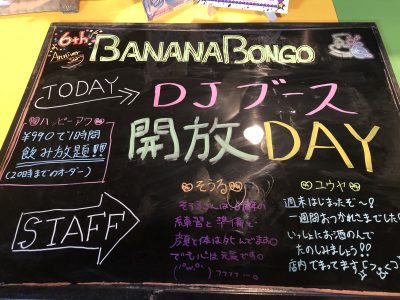 6th
Anniversary
BANANABONGO
TODAY
DJブース
開放DAY
ハッピーアワー
¥990で1時間
飲み放題!!
(20時までのオーダー)
STAFF
そうる
練習と準備で
顔と体は死んでますが
でも心は元気です。
ユウヤ
週末はじまったぞ〜!
一週間おつかれさまでした!
いっしょにお酒のんで
たのしみましょう!!
店内で まってます